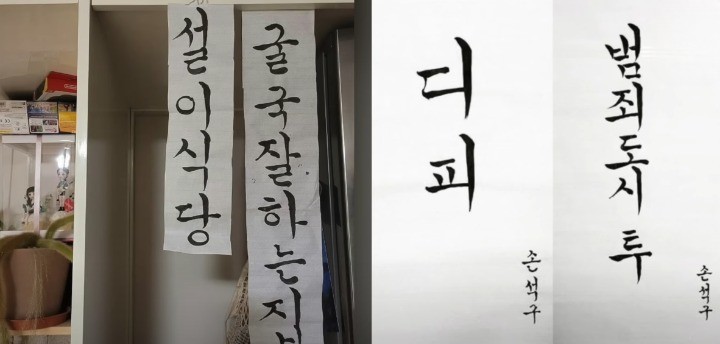 설이식당
굴국잘하는집
디피
손석구
범죄도시 투
손석구